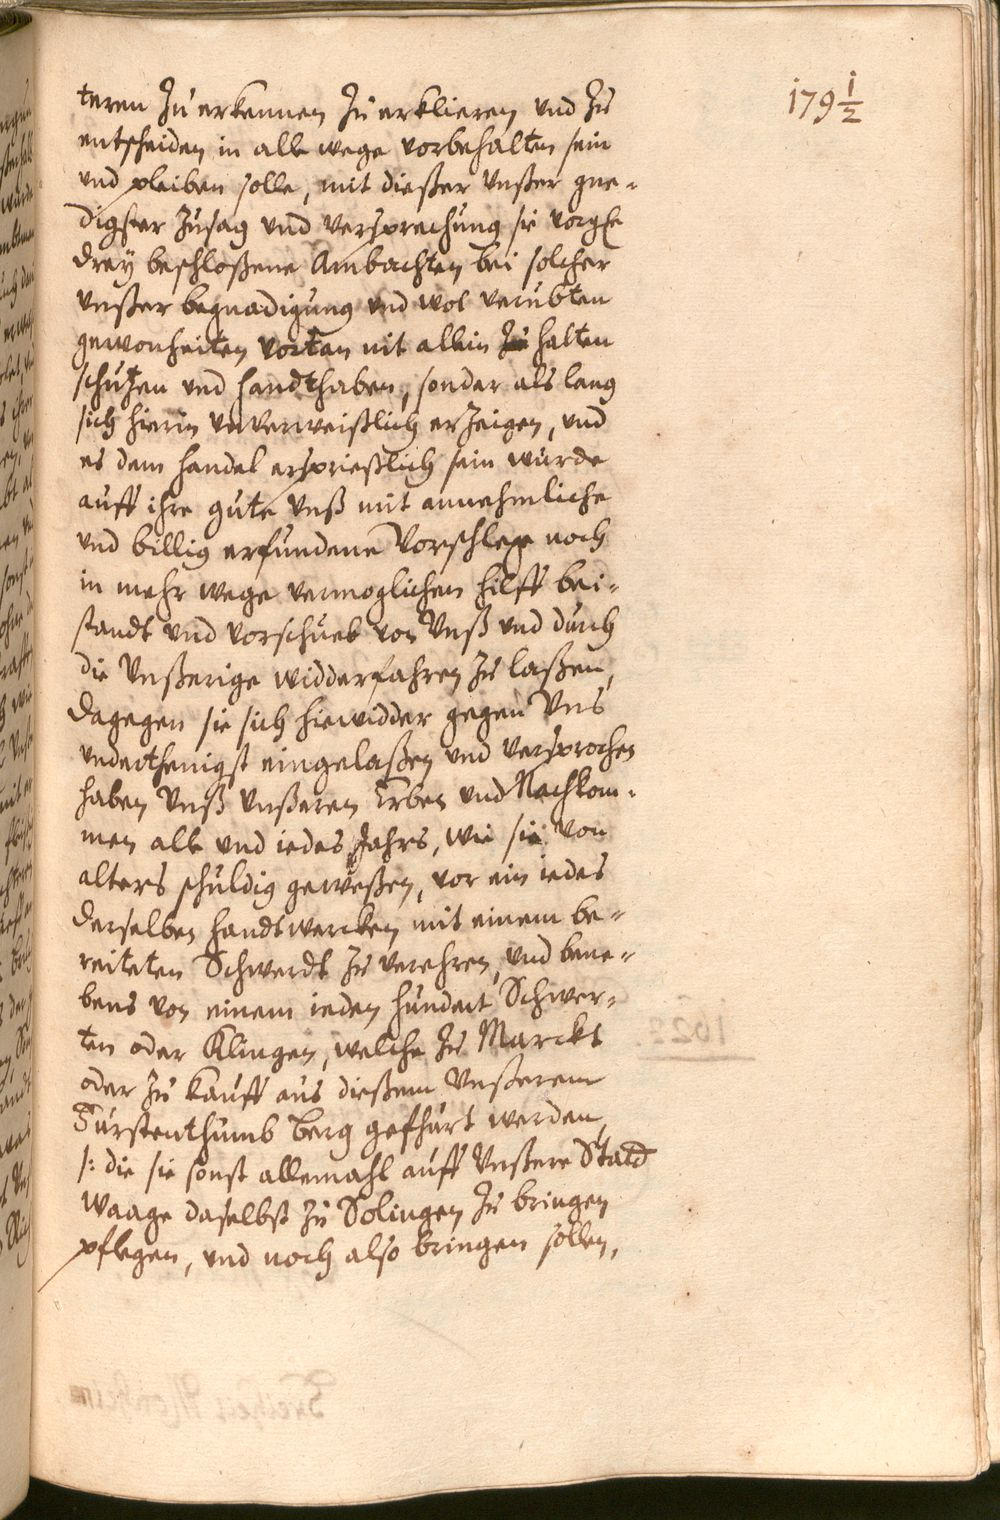 179 1/2
teren Zu erkennen Zu erklieren und Zu
entscheiden in alle wege vorbehalten sein
und pleiben solle, mit dießer Unßer gne-
digster Zusag und Versprechung sie vorgɫe
drey beschloßene Ambachten bei solcher
Unßer begnadigung und wol verubten
gewonheiten vortan nit allein Zu halten
schutzen und handthaben, sonder als lang
sich hierin unverweißlich erZeigen, und
es dem handel ersprießlich sein wurde
auff ihre gute Unß mit annehmliche
und billig erfundene Vorschlege noch
in mehr wege vermoglichen hilff bei-
standt und vorschueb von Unß und durch
die Unßerige widderfahren Zu laßen,
dagegen sie sich hiewidder gegen Uns
underthenigst eingelaßen und versprochen
haben Unß Unßeren Erben und Nachkom-
men alle und iedes Jahrs, wie sie von
alters schuldig geweßen, vor ein iedes
derselben handtwercken mit einem be-
reiteten Schwerdt Zu verehren, und bene-
bens von einem ieden hundert Schwer-
ten oder Klingen, welche Zu Marckt
oder Zu kauff aus dießem Unßerem
Furstenthumb Berg gefhurt werden,
/: die sie sonst allemahl auff Unßere Statd
Waage daselbst Zu Solingen Zu bringen
pflegen, und noch also bringen sollen,